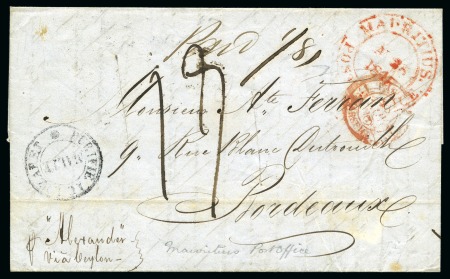 Paid 1/8
MAURITIUS
19
Monsieur Ate Ferran
9, Rue Blanc Dutrouilh
Bordeaux
p "Alexander"
Via Ceylon
Mauritius Post Office